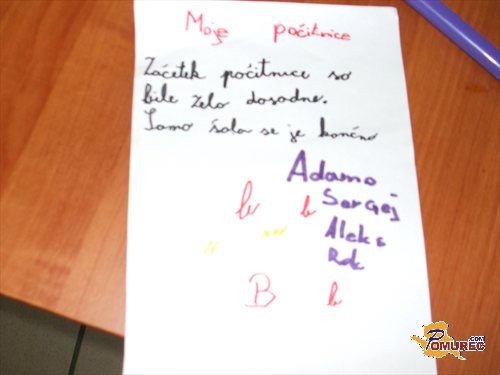 Moje počitnice
Začetek počitnice so
bile zelo dosadne.
Samo šola se je končno
Adamo
Sergej
Aleks
Rok
b b
B b
POMUREC.COM